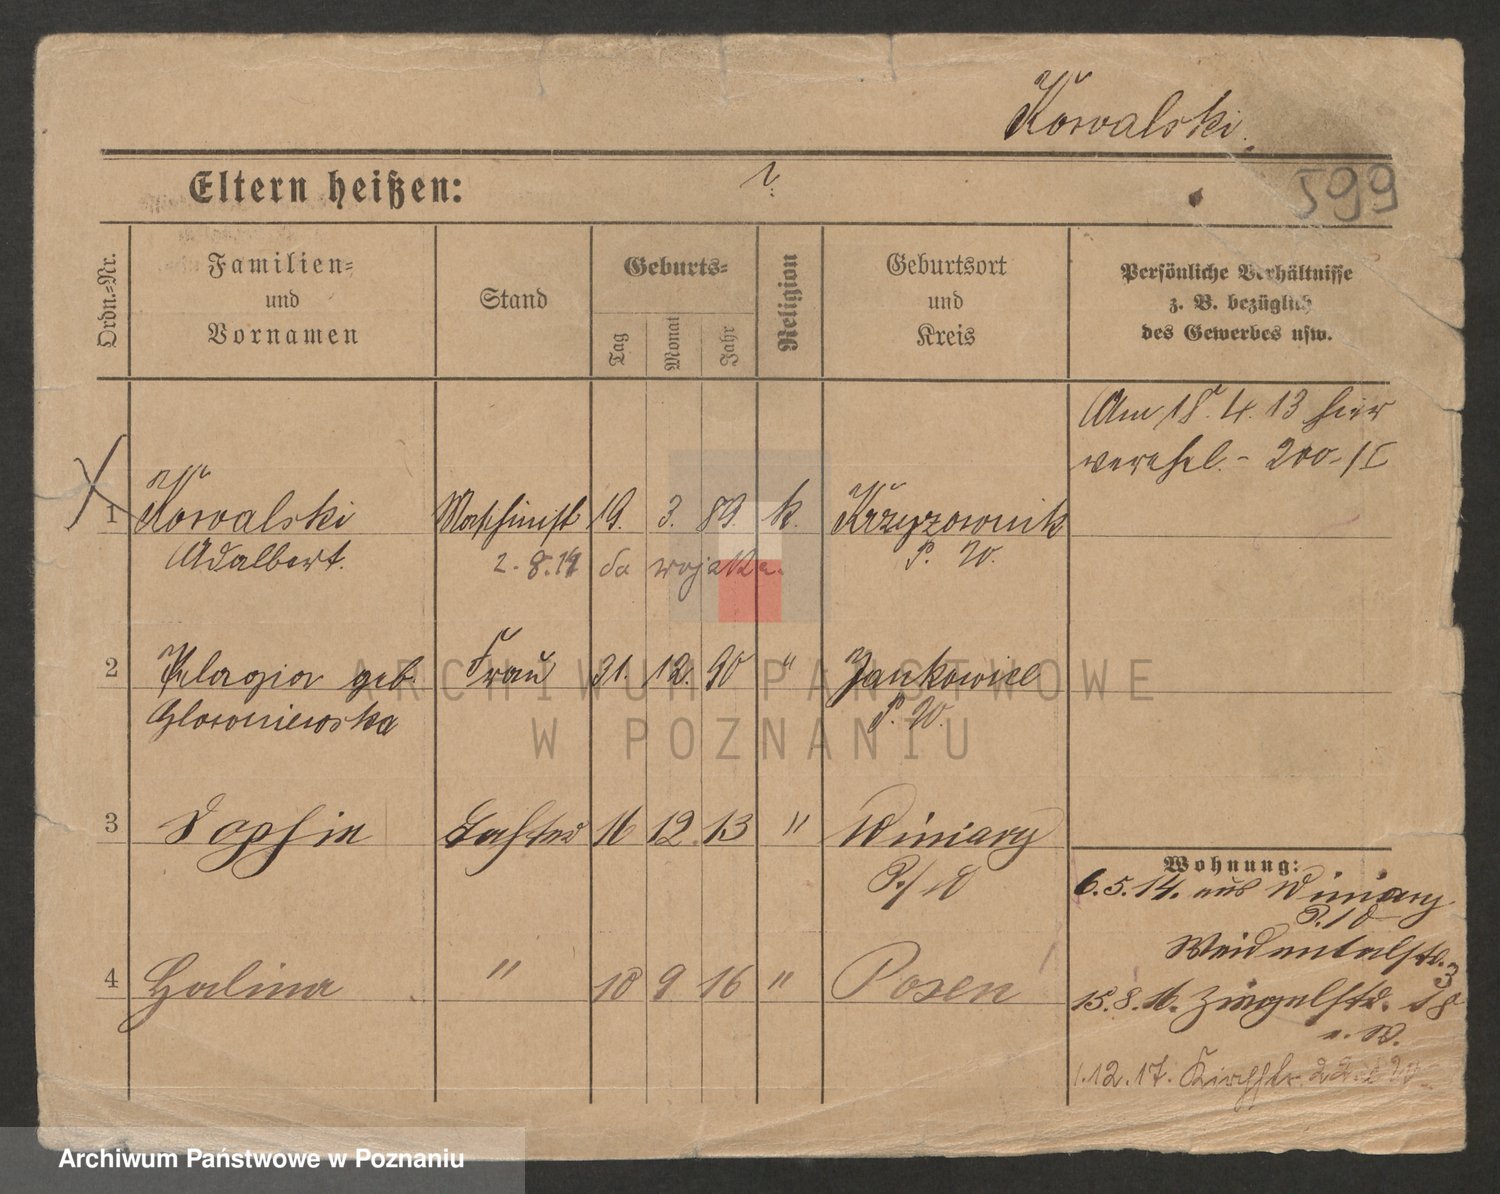 Kowalski.
Eltern heißen:
599
Ordn.-Nr.
Familien-
und
Vornamen
Stand
Geburts-
Tag
Monat
Jahr
Religion
Geburtsort
und
Kreis
Persönliche Verhältnisse
z. B. bezüglich
des Gewerbes usw.
Am 18. 4. 13 hier
verehel. - 200-/
1 Kowalski Maschinist 19. 3. 89. k. Krzyzownik
Adalbert. 2.8.14 do wojska. P. W.
2 Pelagia geb. Frau 21. 12. 90 " Jankowice
P. W.
3 Sophie Tochter 16 12 13 " Winiary
P./W
Wohnung:
6.5.14. aus Winiary
Weidentalstr.
3
4 Halina " 10 9 16 " Posen
15.8.16. Ziegelstr. 18
1.12.17. Kirchstr.
ARCHIWUM PAŃSTWOWE
W POZNANIU
Archiwum Państwowe w Poznaniu